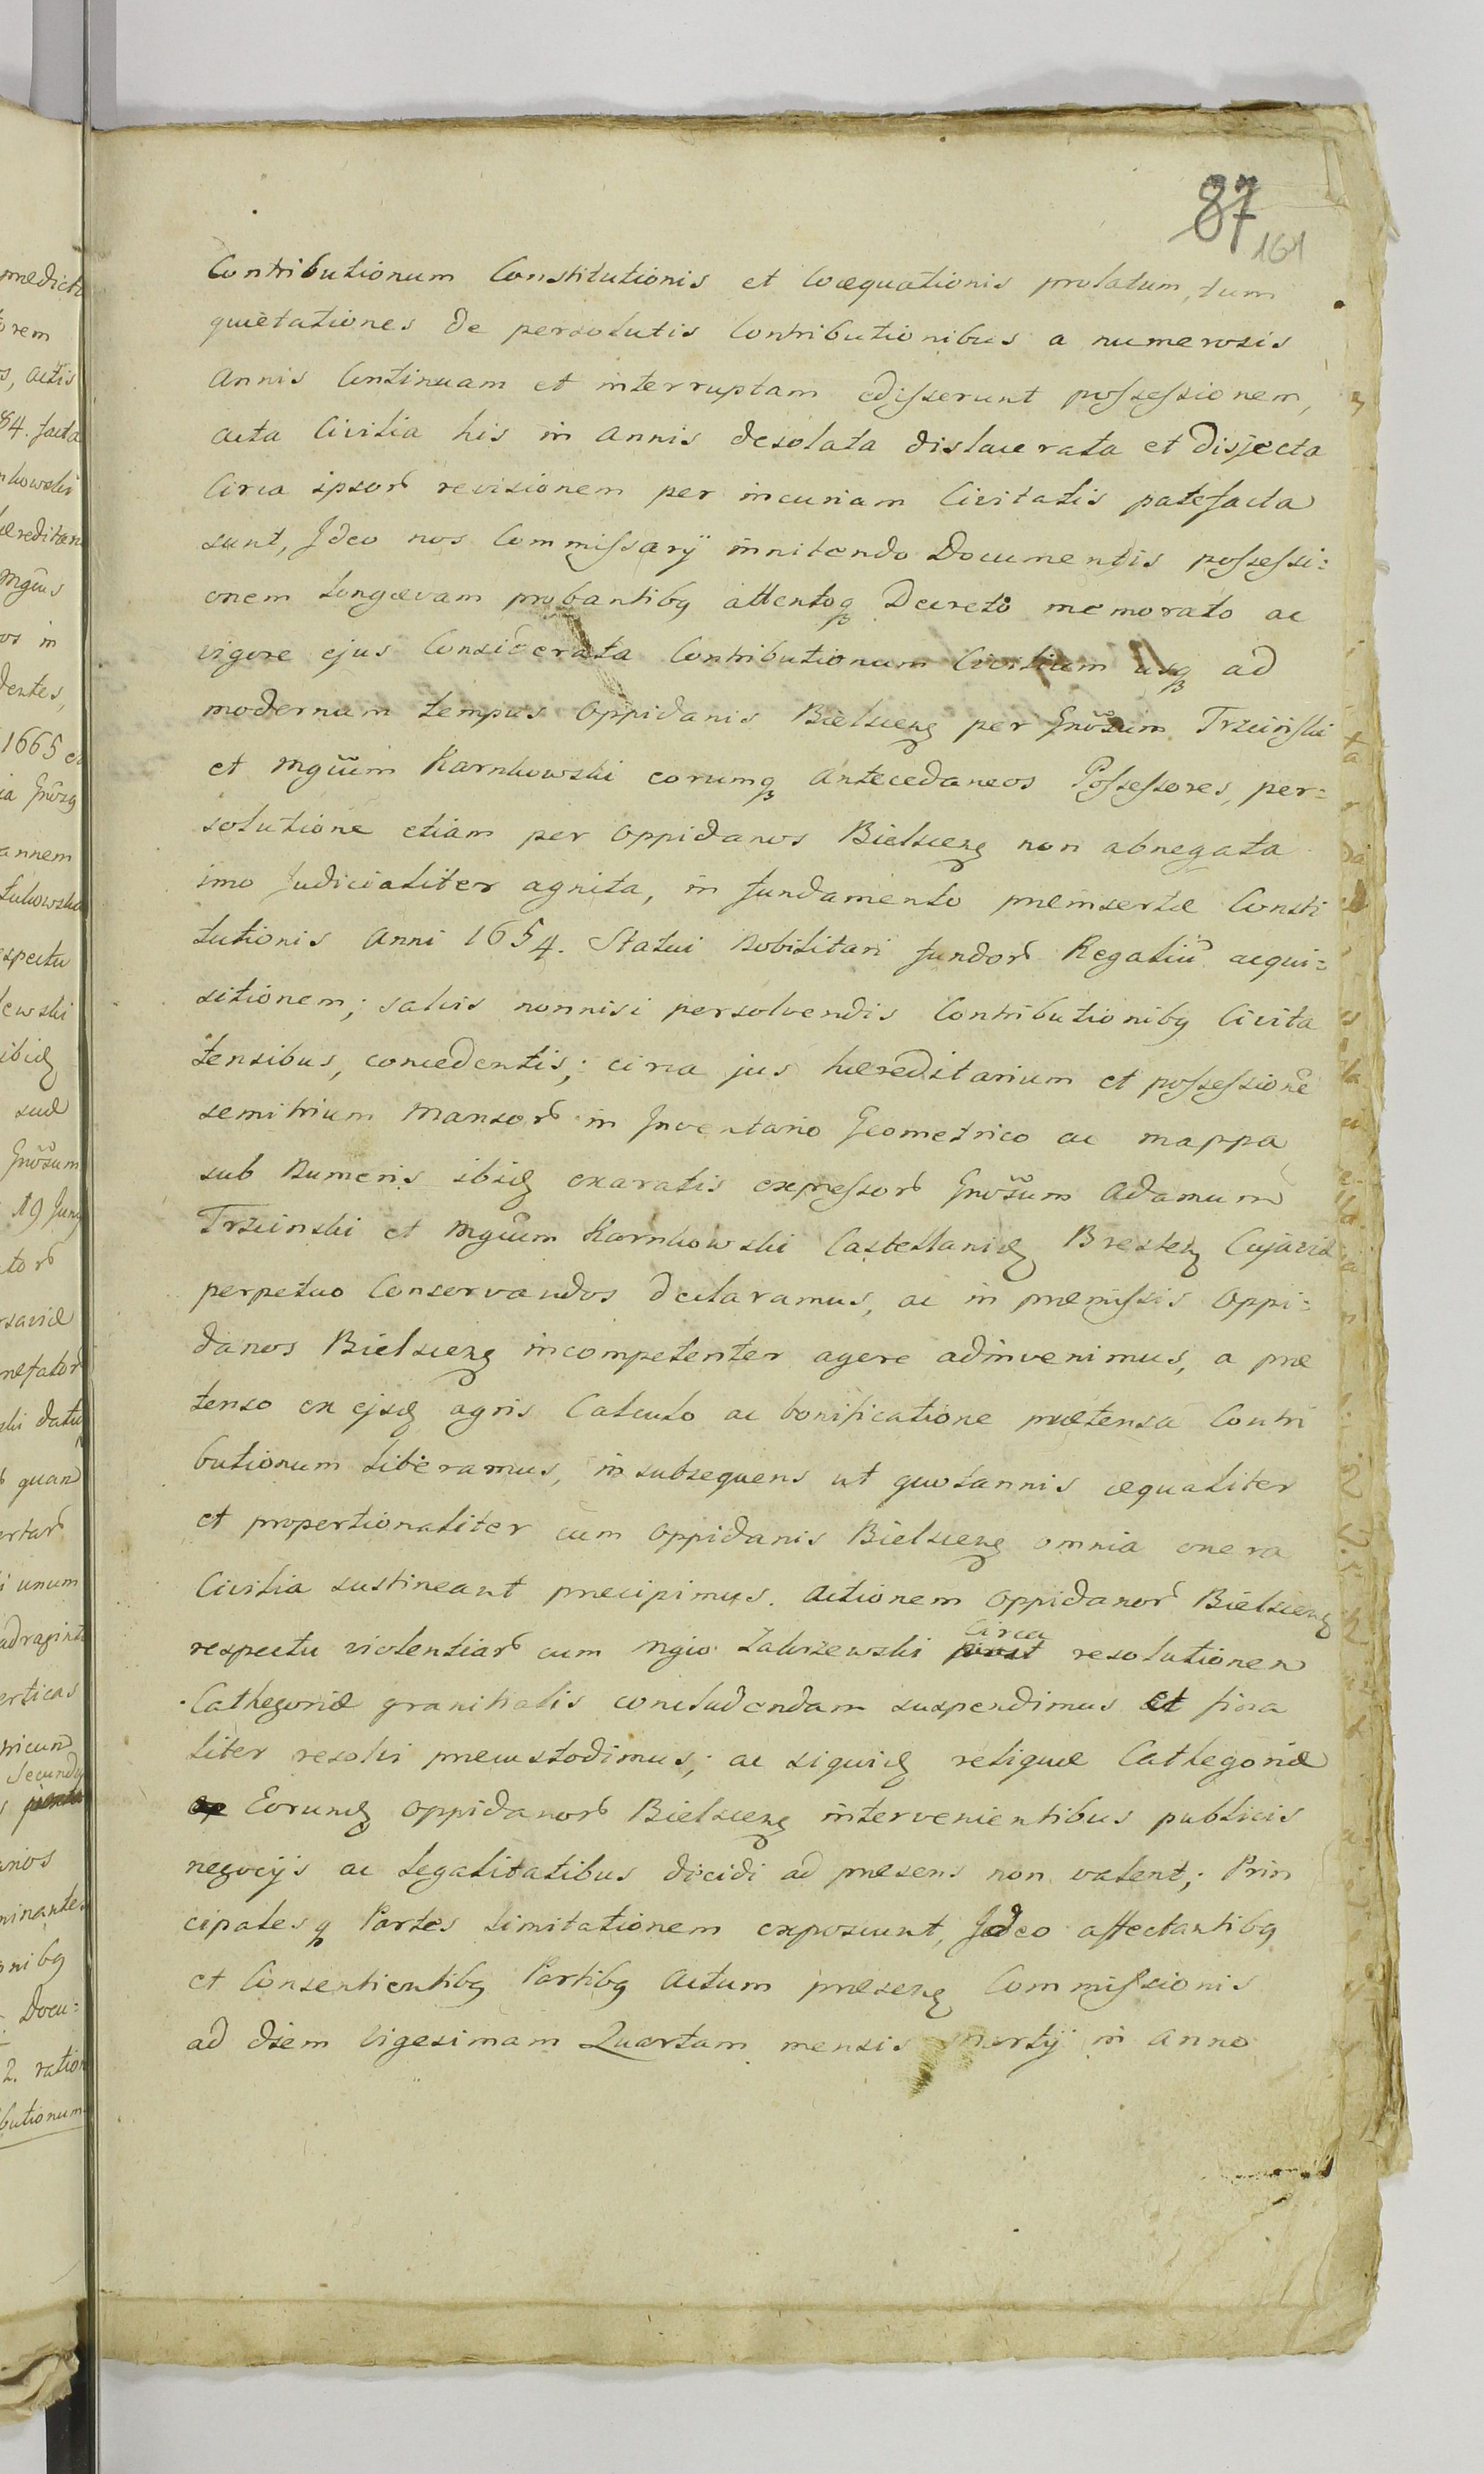 87
161
Contributionum Constitutionis et Coæquationis prolatum, tum
quietationes de persolutis Contributionibus a numerosis
Annis Continuam et interruptam edisserunt possessionem,
acta Civilia his in Annis desolata dislacerata et disjecta
Circa ipsor revisionem per incuriam Civitatis patefacta
sunt, Ideo nos Commissarÿ innitendo Documentis possessi:
onem longævam probantibq attentoq Decreto memorato ac
vigore ejus Considerata Contributionum Civilium usq ad
modernum tempus Oppidanis Bielscens per Gnosum Trzcinski
et Mgcum Karnkowski eorumq Antecedaneos Possessores, per:
solutione etiam per Oppidanos Bielscens non abnegata
imo Judicialiter agnita, in fundamento præinsertæ Consti
tutionis Anni 1654. Statui Nobilitari fundor Regaliu acqui:
sitionem; salvis nonnisi persolvendis Contributionibq Civita
tensibus, concedentis; circa jus hæreditarium et possessione
semitrium Mansor in Inventario Geometrico ac Mappa
sub Numeris ibid exaratis expressor Gnosum Adamum
Trzcinski et Mgcum Karnkowski Castellanid Brestens Cujaviæ
perpetuo Conservandos declaramus, ac in præmissis Oppi:
danos Bielscens incompetenter agere adinvenimus, a præ
tenso ex ejsd agris Calculo ac bonificatione prætensa Contri
butionum liberamus, in subsequens ut quotannis æqualiter
et proportionaliter cum Oppidanis Bielscens omnia onera
Civilia sustineant præcipimus. Actionem Oppidanor Bielscens
respectu violentiar cum Mgco Zakrzewski Circa resolutionem
Cathegoriæ granitialis concludendam suspendimus et fina
liter resolvi præcustodimus; ac siquid reliquæ Cathegoriæ
Eorund Oppidanor Bielscens intervenientibus publicis
negocÿs ac legalitatibus dicidi ad præsens non valent; Prin
cipalesq Partes limitationem exposcunt, Ideo affectantibq
et Consentientibq Partibq Actum præsens Commissionis
ad diem Vigesimam Quartam mensis Martÿ in Anno